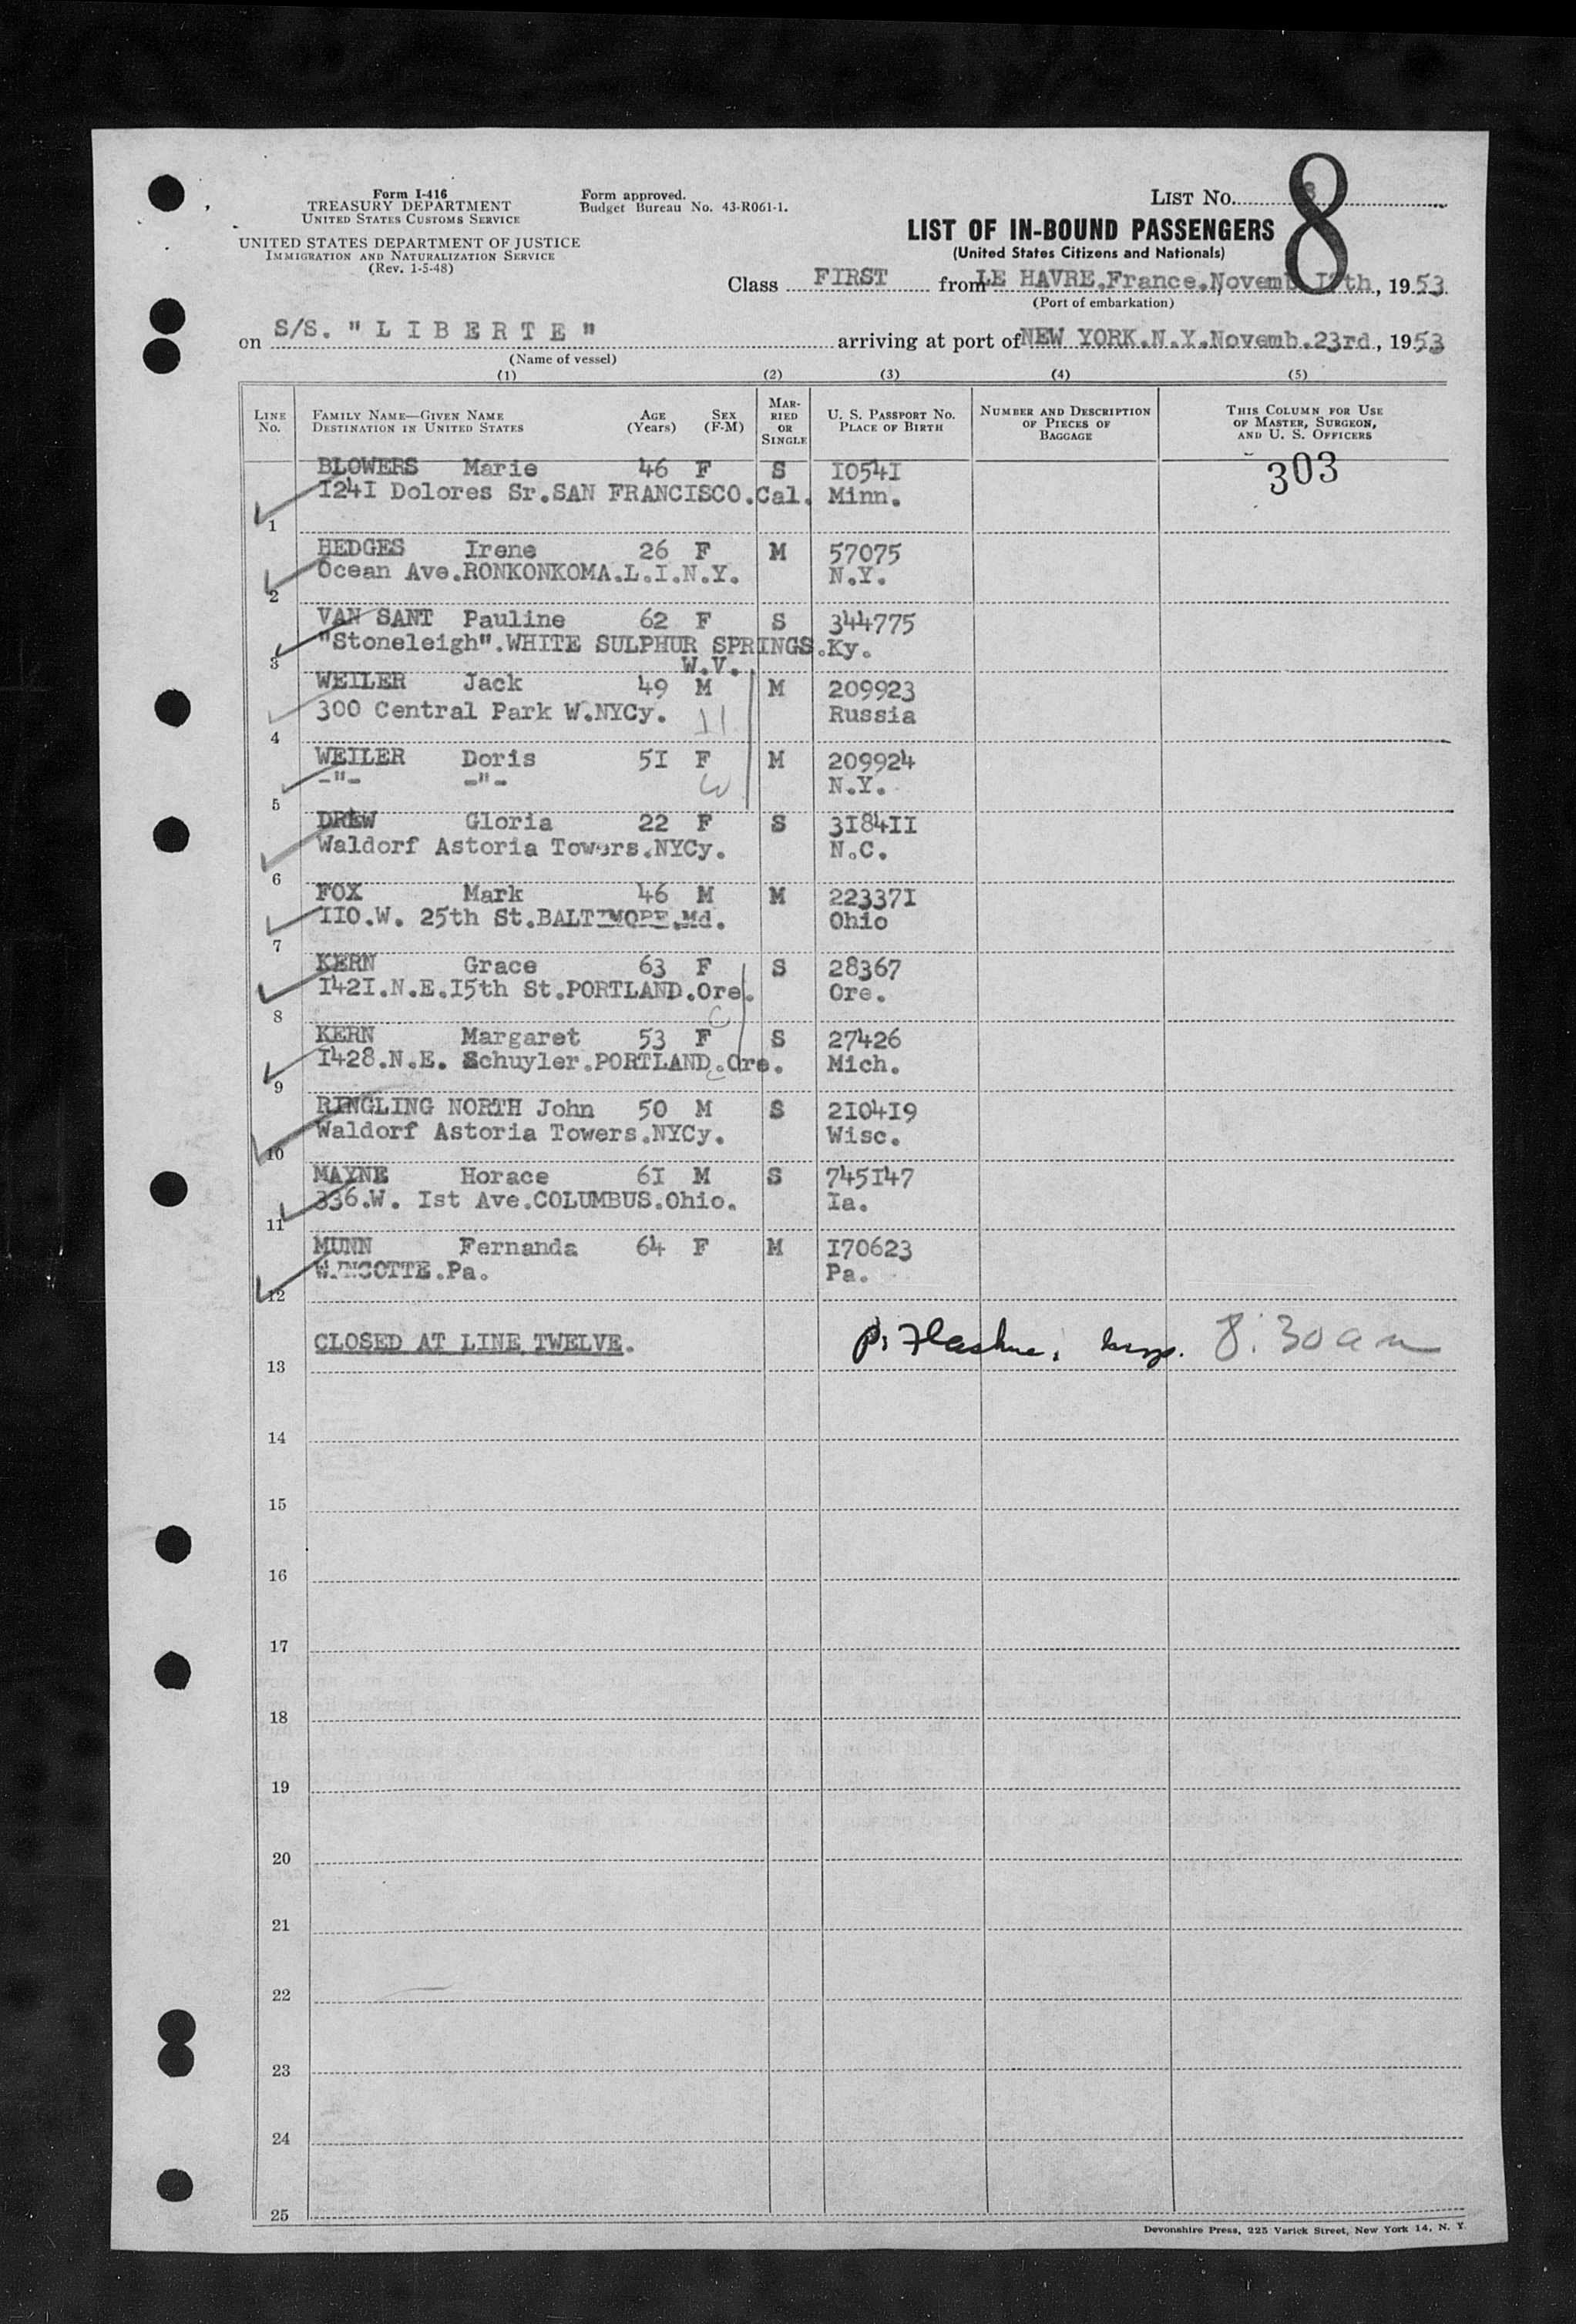 Form I-416
TREASURY DEPARTMENT
UNITED STATES CUSTOMS SERVICE
UNITED STATES DEPARTMENT OF JUSTICE
IMMIGRATION AND NATURALIZATION SERVICE
(Rev. 1-5-48)
Form approved.
Budget Bureau No. 43-R061-1.
LIST No. 8
LIST OF IN-BOUND PASSENGERS
(United States Citizens and Nationals)
Class FIRST from LE HAVRE.France.Novemb , 1953
(Port of embarkation)
on S/S. "LIBERTE" arriving at port of NEW YORK.N.Y.Novemb.23rd, 1953
(Name of vessel)
(1) (2) (3) (4) (5)
LINE No. FAMILY NAME—GIVEN NAME DESTINATION IN UNITED STATES AGE (Years) SEX (F-M) MARRIED OR SINGLE U. S. PASSPORT NO. PLACE OF BIRTH NUMBER AND DESCRIPTION OF PIECES OF BAGGAGE THIS COLUMN FOR USE OF MASTER, SURGEON, AND U. S. OFFICERS
303
BLOWERS Marie 46 F S I054I
I24I Dolores Sr.SAN FRANCISCO.Cal. Minn.
1
HEDGES Irene 26 F M 57075
Ocean Ave.RONKONKOMA.L.I.N.Y. N.Y.
2
VAN SANT Pauline 62 F S 344775
"Stoneleigh".WHITE SULPHUR SPRINGS.Ky.
3 W.V.
WEILER Jack 49 M M 209923
300 Central Park W.NYCy. Russia
4
WEILER Doris 5I F M 209924
-"- -"- N.Y.
5
DREW Gloria 22 F S 3I84II
Waldorf Astoria Towers.NYCy. N.C.
6
FOX Mark 46 M M 22337I
IIO.W. 25th St.BALTIMORE.Md. Ohio
7
KERN Grace 63 F S 28367
I42I.N.E.I5th St.PORTLAND.Ore. Ore.
8
KERN Margaret 53 F S 27426
I428.N.E. Schuyler.PORTLAND.Ore. Mich.
9
RINGLING NORTH John 50 M S 2I04I9
Waldorf Astoria Towers.NYCy. Wisc.
10
MAYNE Horace 6I M S 745I47
336.W. Ist Ave.COLUMBUS.Ohio. Ia.
11
MUNN Fernanda 64 F M I70623
WYNCOTTE.Pa. Pa.
12
CLOSED AT LINE TWELVE. 8:30 am
13
14
15
16
17
18
19
20
21
22
23
24
25
Devonshire Press, 225 Varick Street, New York 14, N. Y.